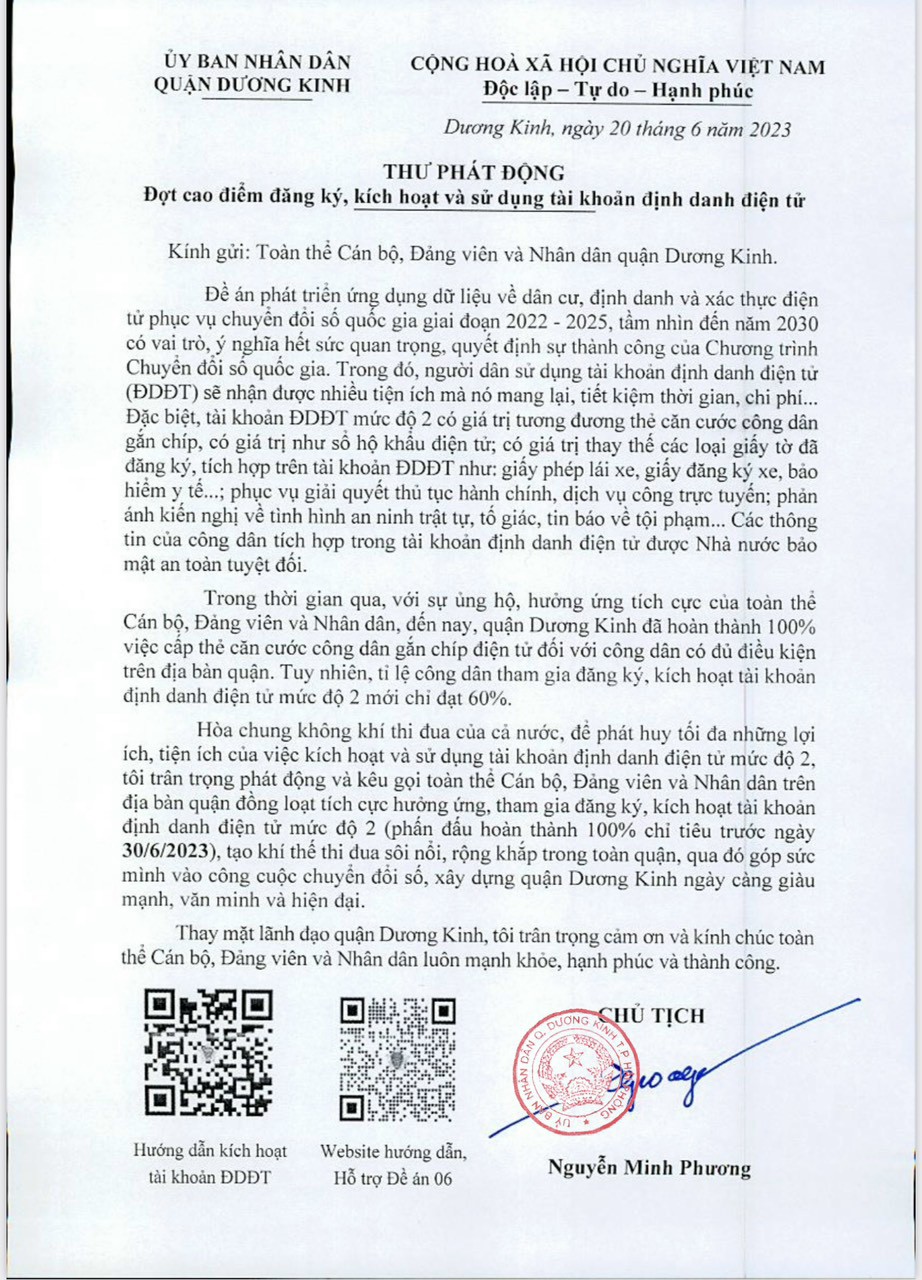 ỦY BAN NHÂN DÂN
QUẬN DƯƠNG KINH
CỘNG HOÀ XÃ HỘI CHỦ NGHĨA VIỆT NAM
Độc lập – Tự do – Hạnh phúc
Dương Kinh, ngày 20 tháng 6 năm 2023
THƯ PHÁT ĐỘNG
Đợt cao điểm đăng ký, kích hoạt và sử dụng tài khoản định danh điện tử
Kính gửi: Toàn thể Cán bộ, Đảng viên và Nhân dân quận Dương Kinh.
Đề án phát triển ứng dụng dữ liệu về dân cư, định danh và xác thực điện
tử phục vụ chuyển đổi số quốc gia giai đoạn 2022 - 2025, tầm nhìn đến năm 2030
có vai trò, ý nghĩa hết sức quan trọng, quyết định sự thành công của Chương trình
Chuyển đổi số quốc gia. Trong đó, người dân sử dụng tài khoản định danh điện tử
(ĐDĐT) sẽ nhận được nhiều tiện ích mà nó mang lại, tiết kiệm thời gian, chi phí...
Đặc biệt, tài khoản ĐDĐT mức độ 2 có giá trị tương đương thẻ căn cước công dân
gắn chíp, có giá trị như sổ hộ khẩu điện tử; có giá trị thay thế các loại giấy tờ đã
đăng ký, tích hợp trên tài khoản ĐDĐT như: giấy phép lái xe, giấy đăng ký xe, bảo
hiểm y tế...; phục vụ giải quyết thủ tục hành chính, dịch vụ công trực tuyến; phản
ánh kiến nghị về tình hình an ninh trật tự, tố giác, tin báo về tội phạm... Các thông
tin của công dân tích hợp trong tài khoản định danh điện tử được Nhà nước bảo
mật an toàn tuyệt đối.
Trong thời gian qua, với sự ủng hộ, hưởng ứng tích cực của toàn thể
Cán bộ, Đảng viên và Nhân dân, đến nay, quận Dương Kinh đã hoàn thành 100%
việc cấp thẻ căn cước công dân gắn chíp điện tử đối với công dân có đủ điều kiện
trên địa bàn quận. Tuy nhiên, tỉ lệ công dân tham gia đăng ký, kích hoạt tài khoản
định danh điện tử mức độ 2 mới chỉ đạt 60%.
Hòa chung không khí thi đua của cả nước, để phát huy tối đa những lợi
ích, tiện ích của việc kích hoạt và sử dụng tài khoản định danh điện tử mức độ 2,
tôi trân trọng phát động và kêu gọi toàn thể Cán bộ, Đảng viên và Nhân dân trên
địa bàn quận đồng loạt tích cực hưởng ứng, tham gia đăng ký, kích hoạt tài khoản
định danh điện tử mức độ 2 (phấn đấu hoàn thành 100% chỉ tiêu trước ngày
30/6/2023), tạo khí thế thi đua sôi nổi, rộng khắp trong toàn quận, qua đó góp sức
mình vào công cuộc chuyển đổi số, xây dựng quận Dương Kinh ngày càng giàu
mạnh, văn minh và hiện đại.
Thay mặt lãnh đạo quận Dương Kinh, tôi trân trọng cảm ơn và kính chúc toàn
thể Cán bộ, Đảng viên và Nhân dân luôn mạnh khỏe, hạnh phúc và thành công.
CHỦ TỊCH
UỶ BAN NHÂN DÂN Q. DƯƠNG KINH T.P HẢI PHÒNG
Hướng dẫn kích hoạt
tài khoản ĐDĐT
Website hướng dẫn,
Hỗ trợ Đề án 06
Nguyễn Minh Phương